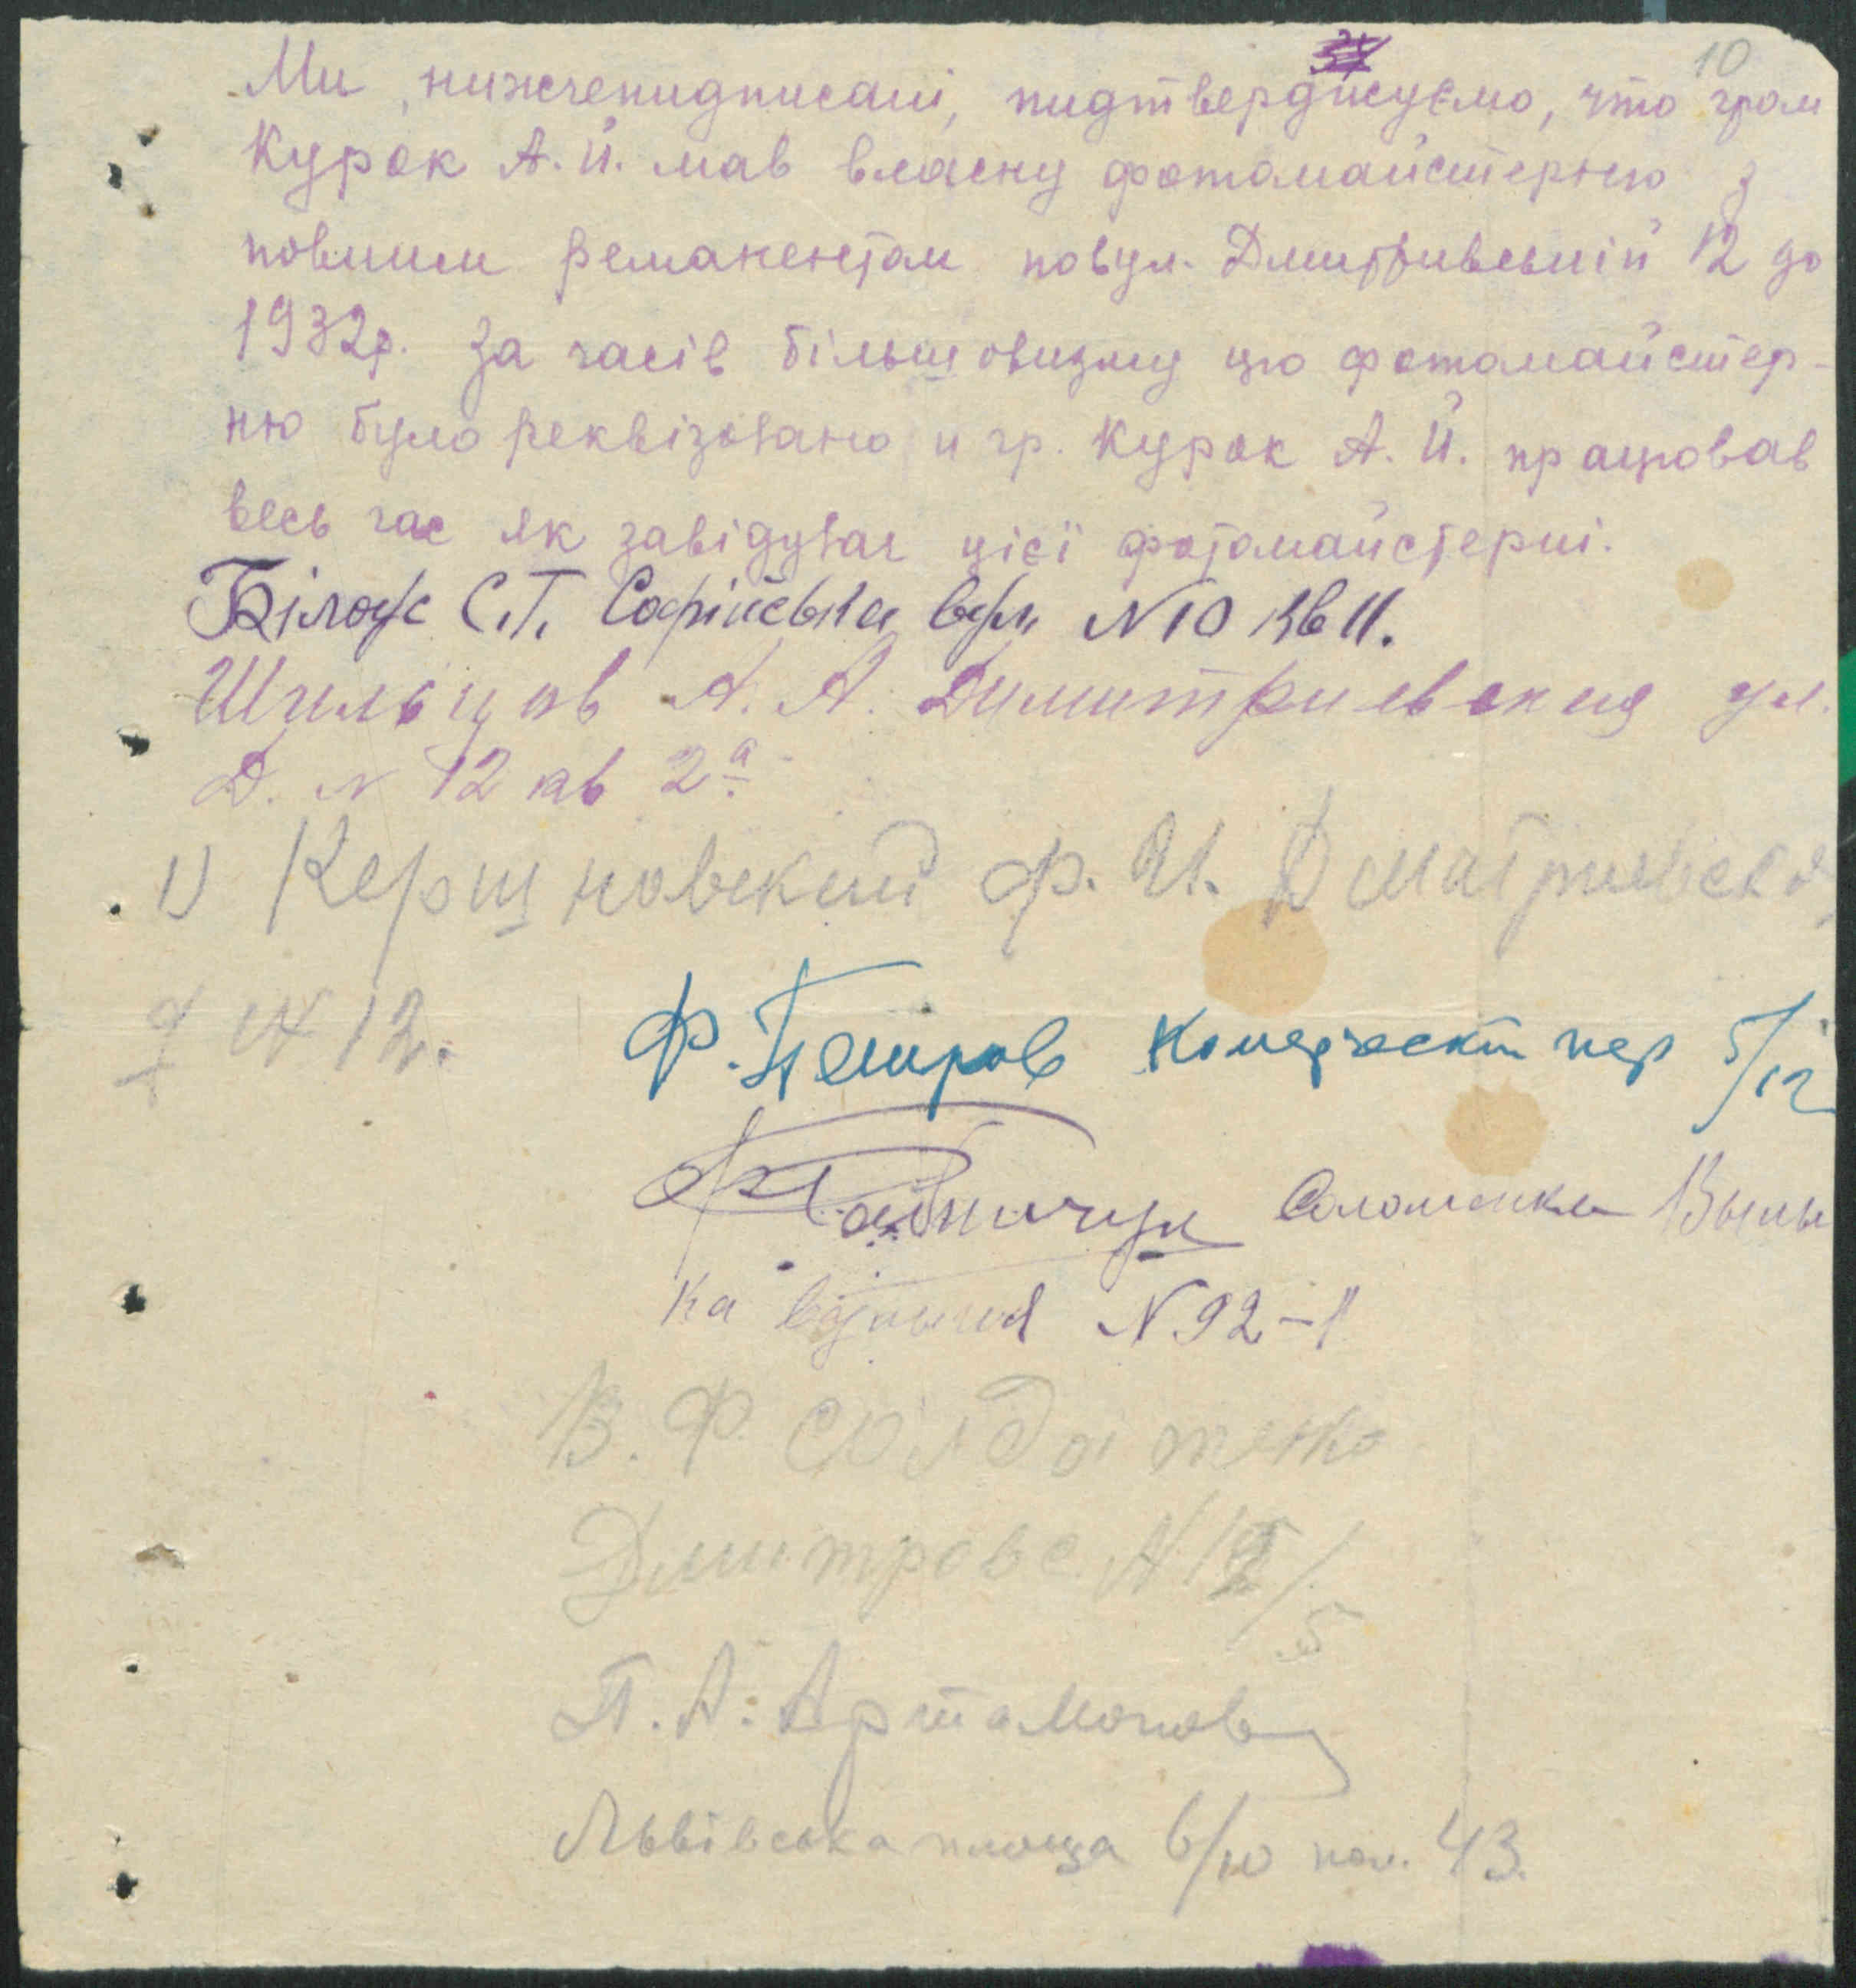 10
Ми, нижчепидписані, пидтверджуємо, что гром
Курок А. Й. мав власну фотомайстерню з
повним ремонентом по вул. Дмитривській 12 до
1932р. За часів більшовизму цю фотомайстер-
ню було реквізовано и гр. Курок А. Й. працовав
весь час як завідувач цієї фотомайстерні.
Білоус С.П. Софійська вул. N10 кв 11.
Шильцов А. А. Димитриевская ул.
Д. N 12 кв 2а
1) Кершновский Ф. И. Дматриевская
д N 12.
Ф. Петров Комерческ пер 5/12
Соломенка
N 92-1
В. Ф. Солдатенко
Дмитровс. N 12/5
П. А. Артамонов
Львівська площа 6/10 пом. 43.